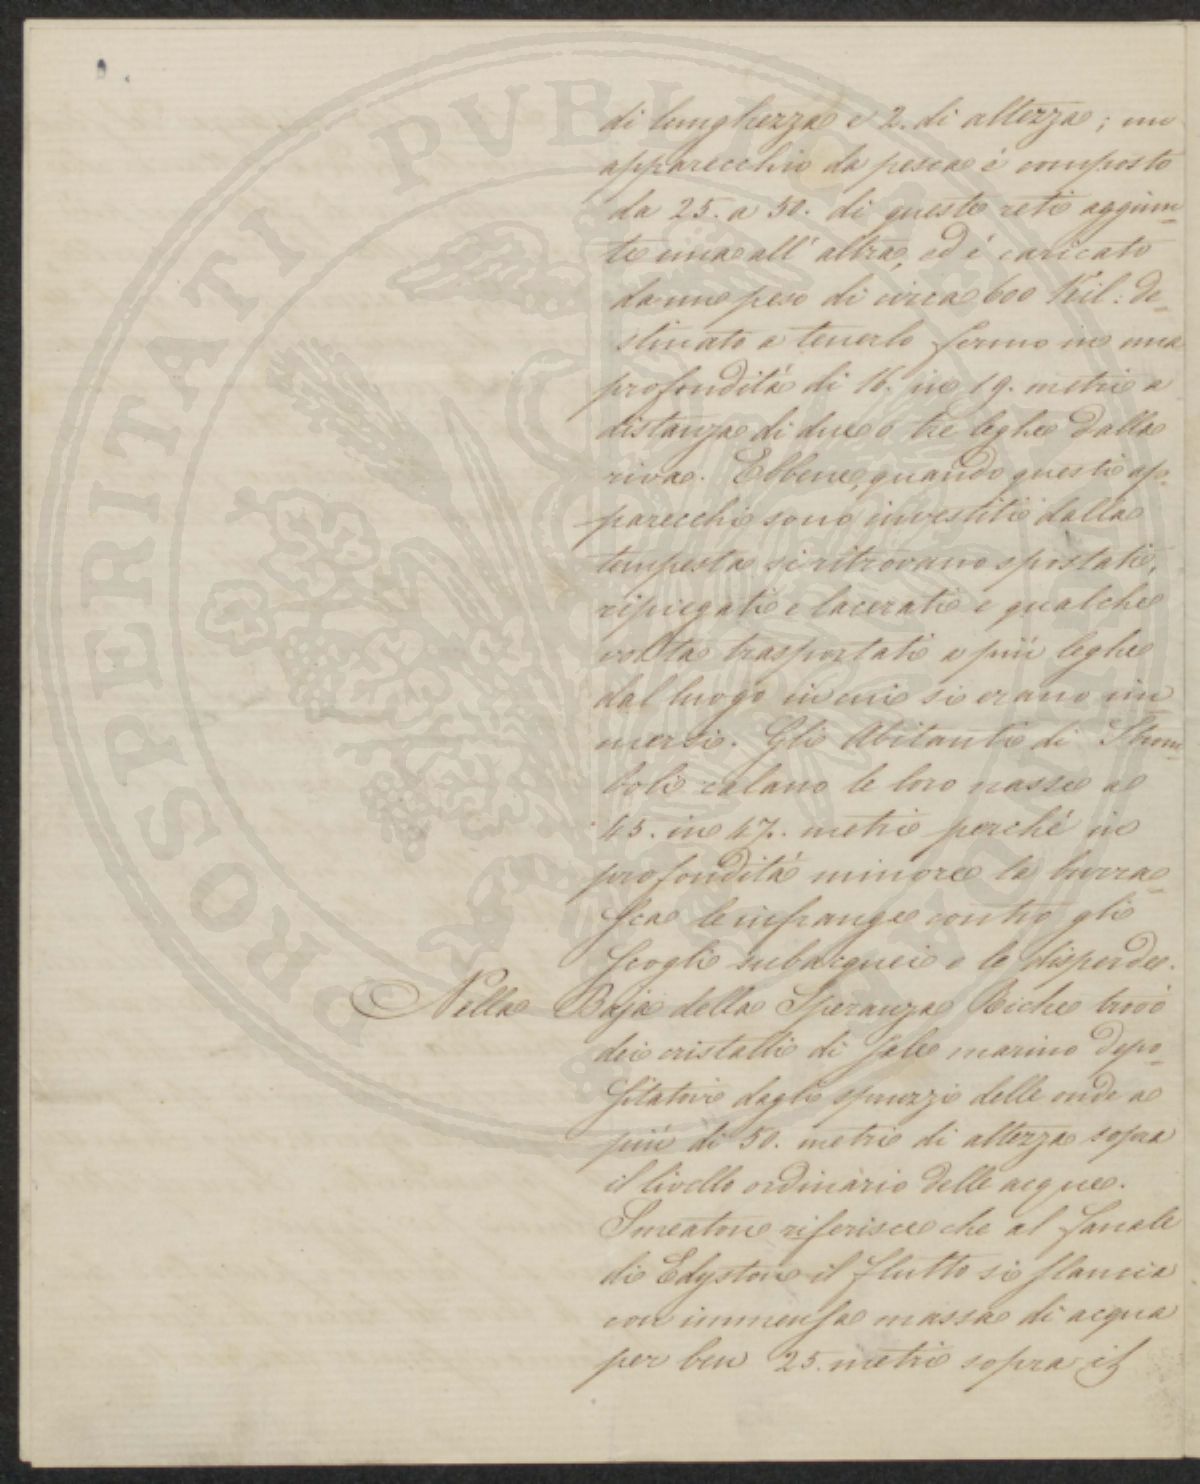 di lunghezza e 2. di altezza; un
apparecchio da pesca è composto
da 25. a 50. di queste reti aggiun-
te una all' altra, ed è caricato
da un peso di circa 600 Kil: de-
stinato a tenerlo fermo in una
profondità di 16. in 19. metri a
distanza di due o tre leghe dalla
riva. Ebbene, quando questi ap-
parecchi sono investiti dalla
tempesta si ritrovano spostati,
ripiegati e lacerati e qualche
volta trasportati a più leghe
dal luogo in cui si erano im-
mersi. Gli Abitanti di Strom-
boli calano le loro nasse a
45. in 47. metri perché in
profondità minore la burra-
sca le infrange contro gli
scogli subacquei e le disperde.
Nella Baja della Speranza Riche trovò
dei cristalli di sale marino depo-
sitativi dagli spruzzi delle onde a
più di 50. metri di altezza sopra
il livello ordinario delle acque.
Smeaton riferisce che al fanale
di Edystone il flutto si slancia
con immensa massa di acqua
per ben 25. metri sopra il
PROSPERITATI PVBLICAE